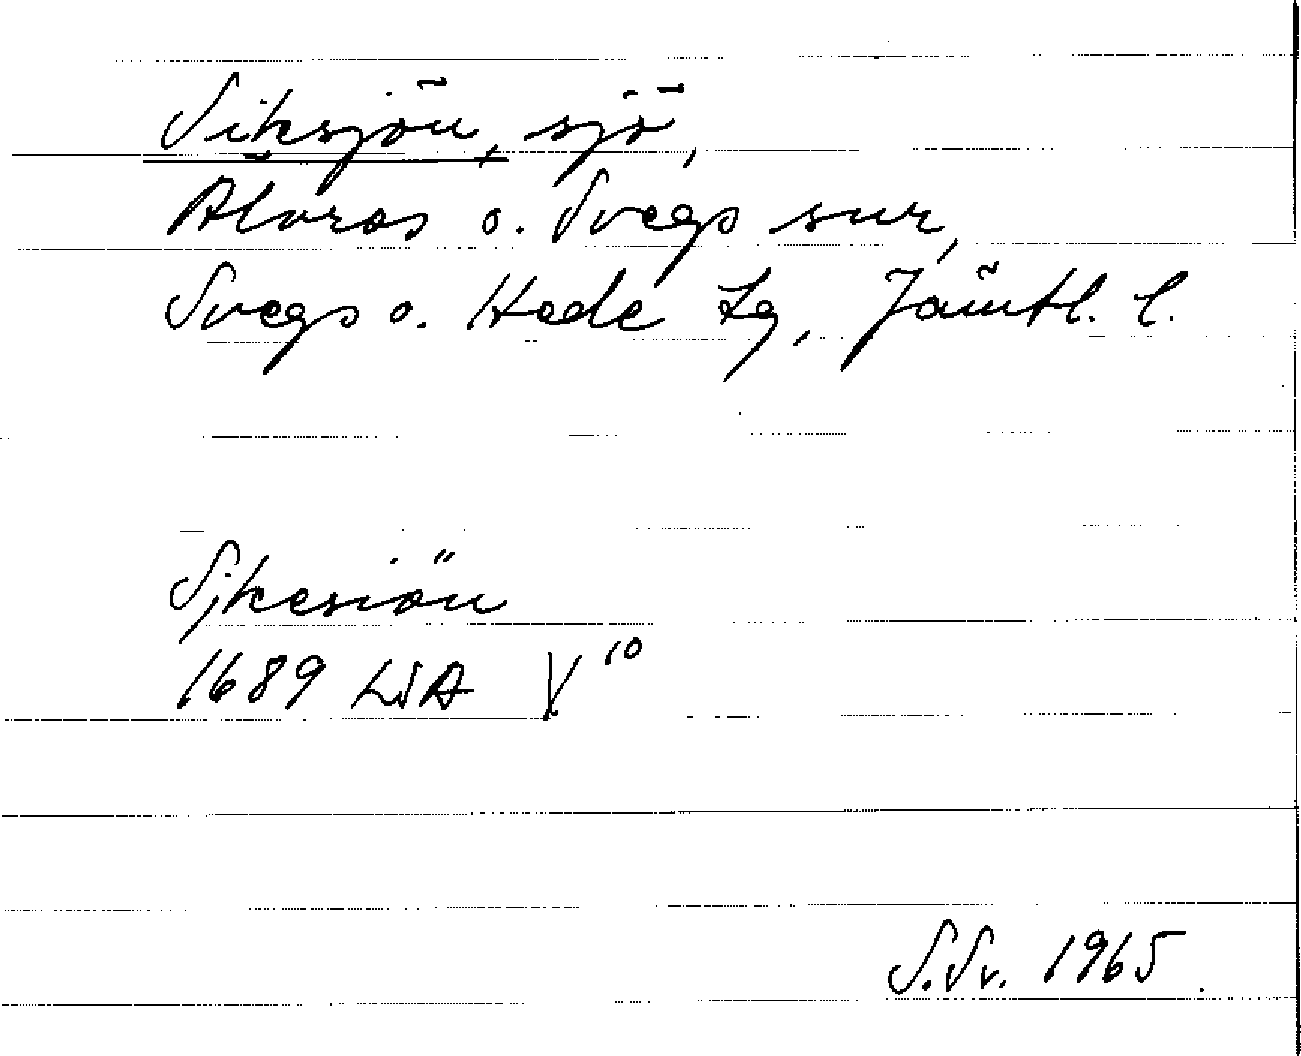 Siksjön, sjö,
Älvros o. Svegs snr,
Svegs o. Hede tg, Jämtl. l.
Sjkesiön
1689 LSA V¹⁰
S.Sv. 1965